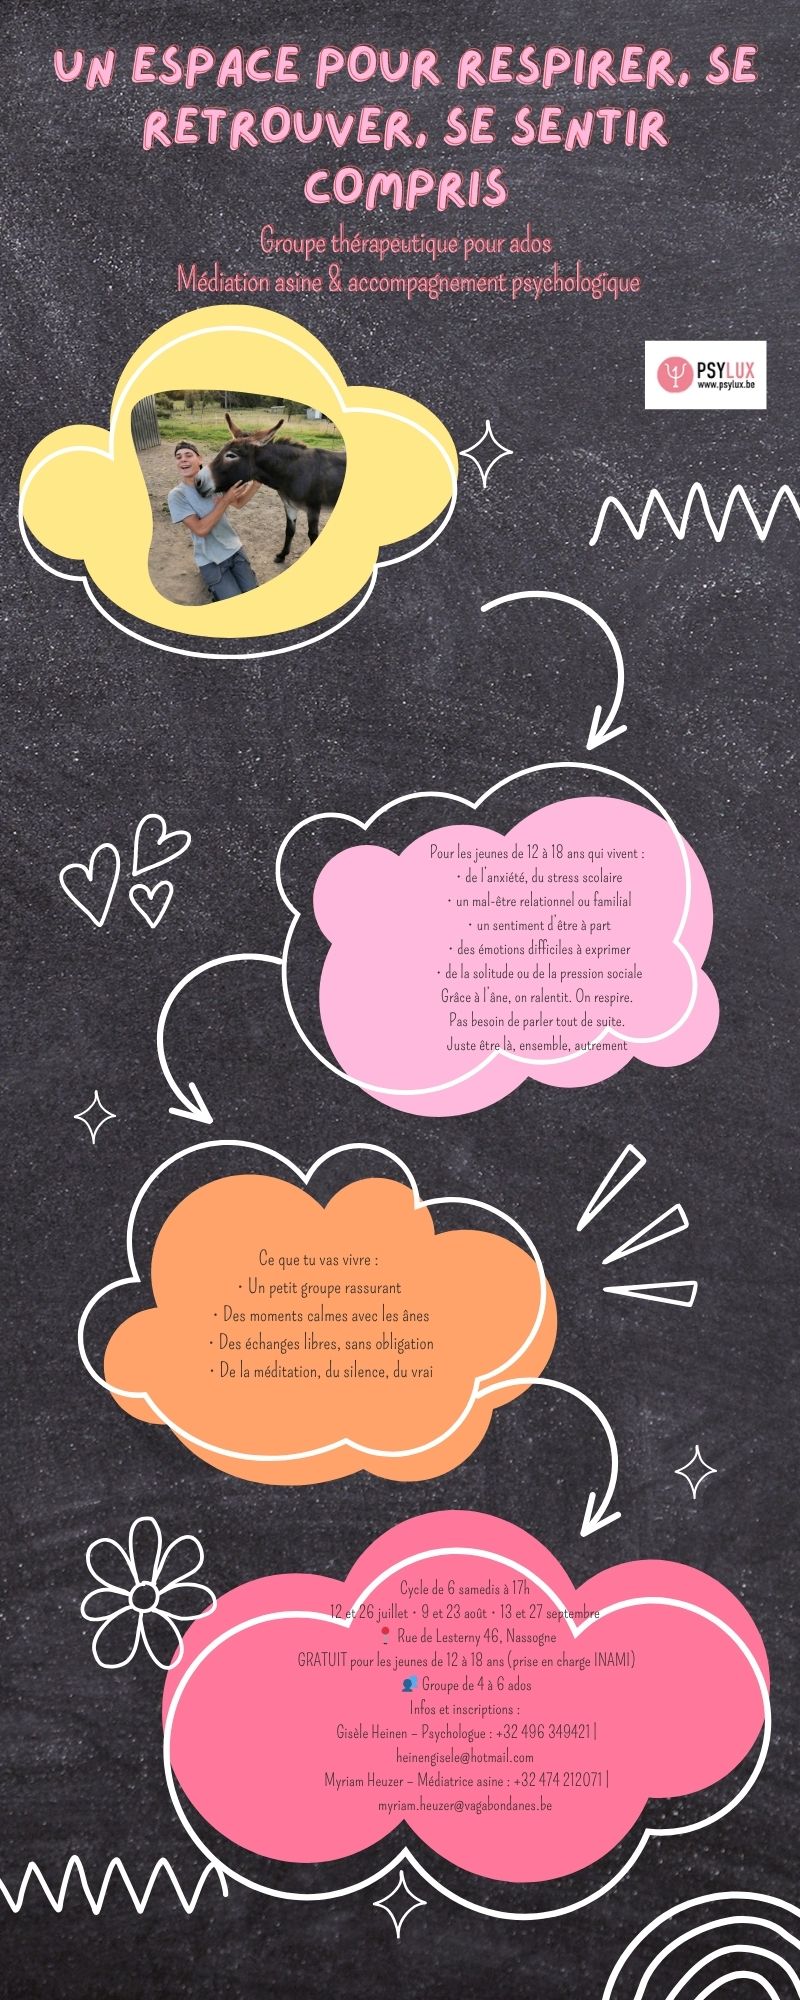 UN ESPACE POUR RESPIRER, SE
RETROUVER, SE SENTIR
COMPRIS
Groupe thérapeutique pour ados
Médiation asine & accompagnement psychologique
PSYLUX
www.psylux.be
Pour les jeunes de 12 à 18 ans qui vivent :
• de l'anxiété, du stress scolaire
• un mal-être relationnel ou familial
• un sentiment d'être à part
• des émotions difficiles à exprimer
• de la solitude ou de la pression sociale
Grâce à l'âne, on ralentit. On respire.
Pas besoin de parler tout de suite.
Juste être là, ensemble, autrement
Ce que tu vas vivre :
• Un petit groupe rassurant
• Des moments calmes avec les ânes
• Des échanges libres, sans obligation
• De la méditation, du silence, du vrai
Cycle de 6 samedis à 17h
12 et 26 juillet • 9 et 23 août • 13 et 27 septembre
📍 Rue de Lesterny 46, Nassogne
GRATUIT pour les jeunes de 12 à 18 ans (prise en charge INAMI)
👥 Groupe de 4 à 6 ados
Infos et inscriptions :
Gisèle Heinen – Psychologue : +32 496 349421 |
heinengisele@hotmail.com
Myriam Heuzer – Médiatrice asine : +32 474 212071 |
myriam.heuzer@vagabondanes.be